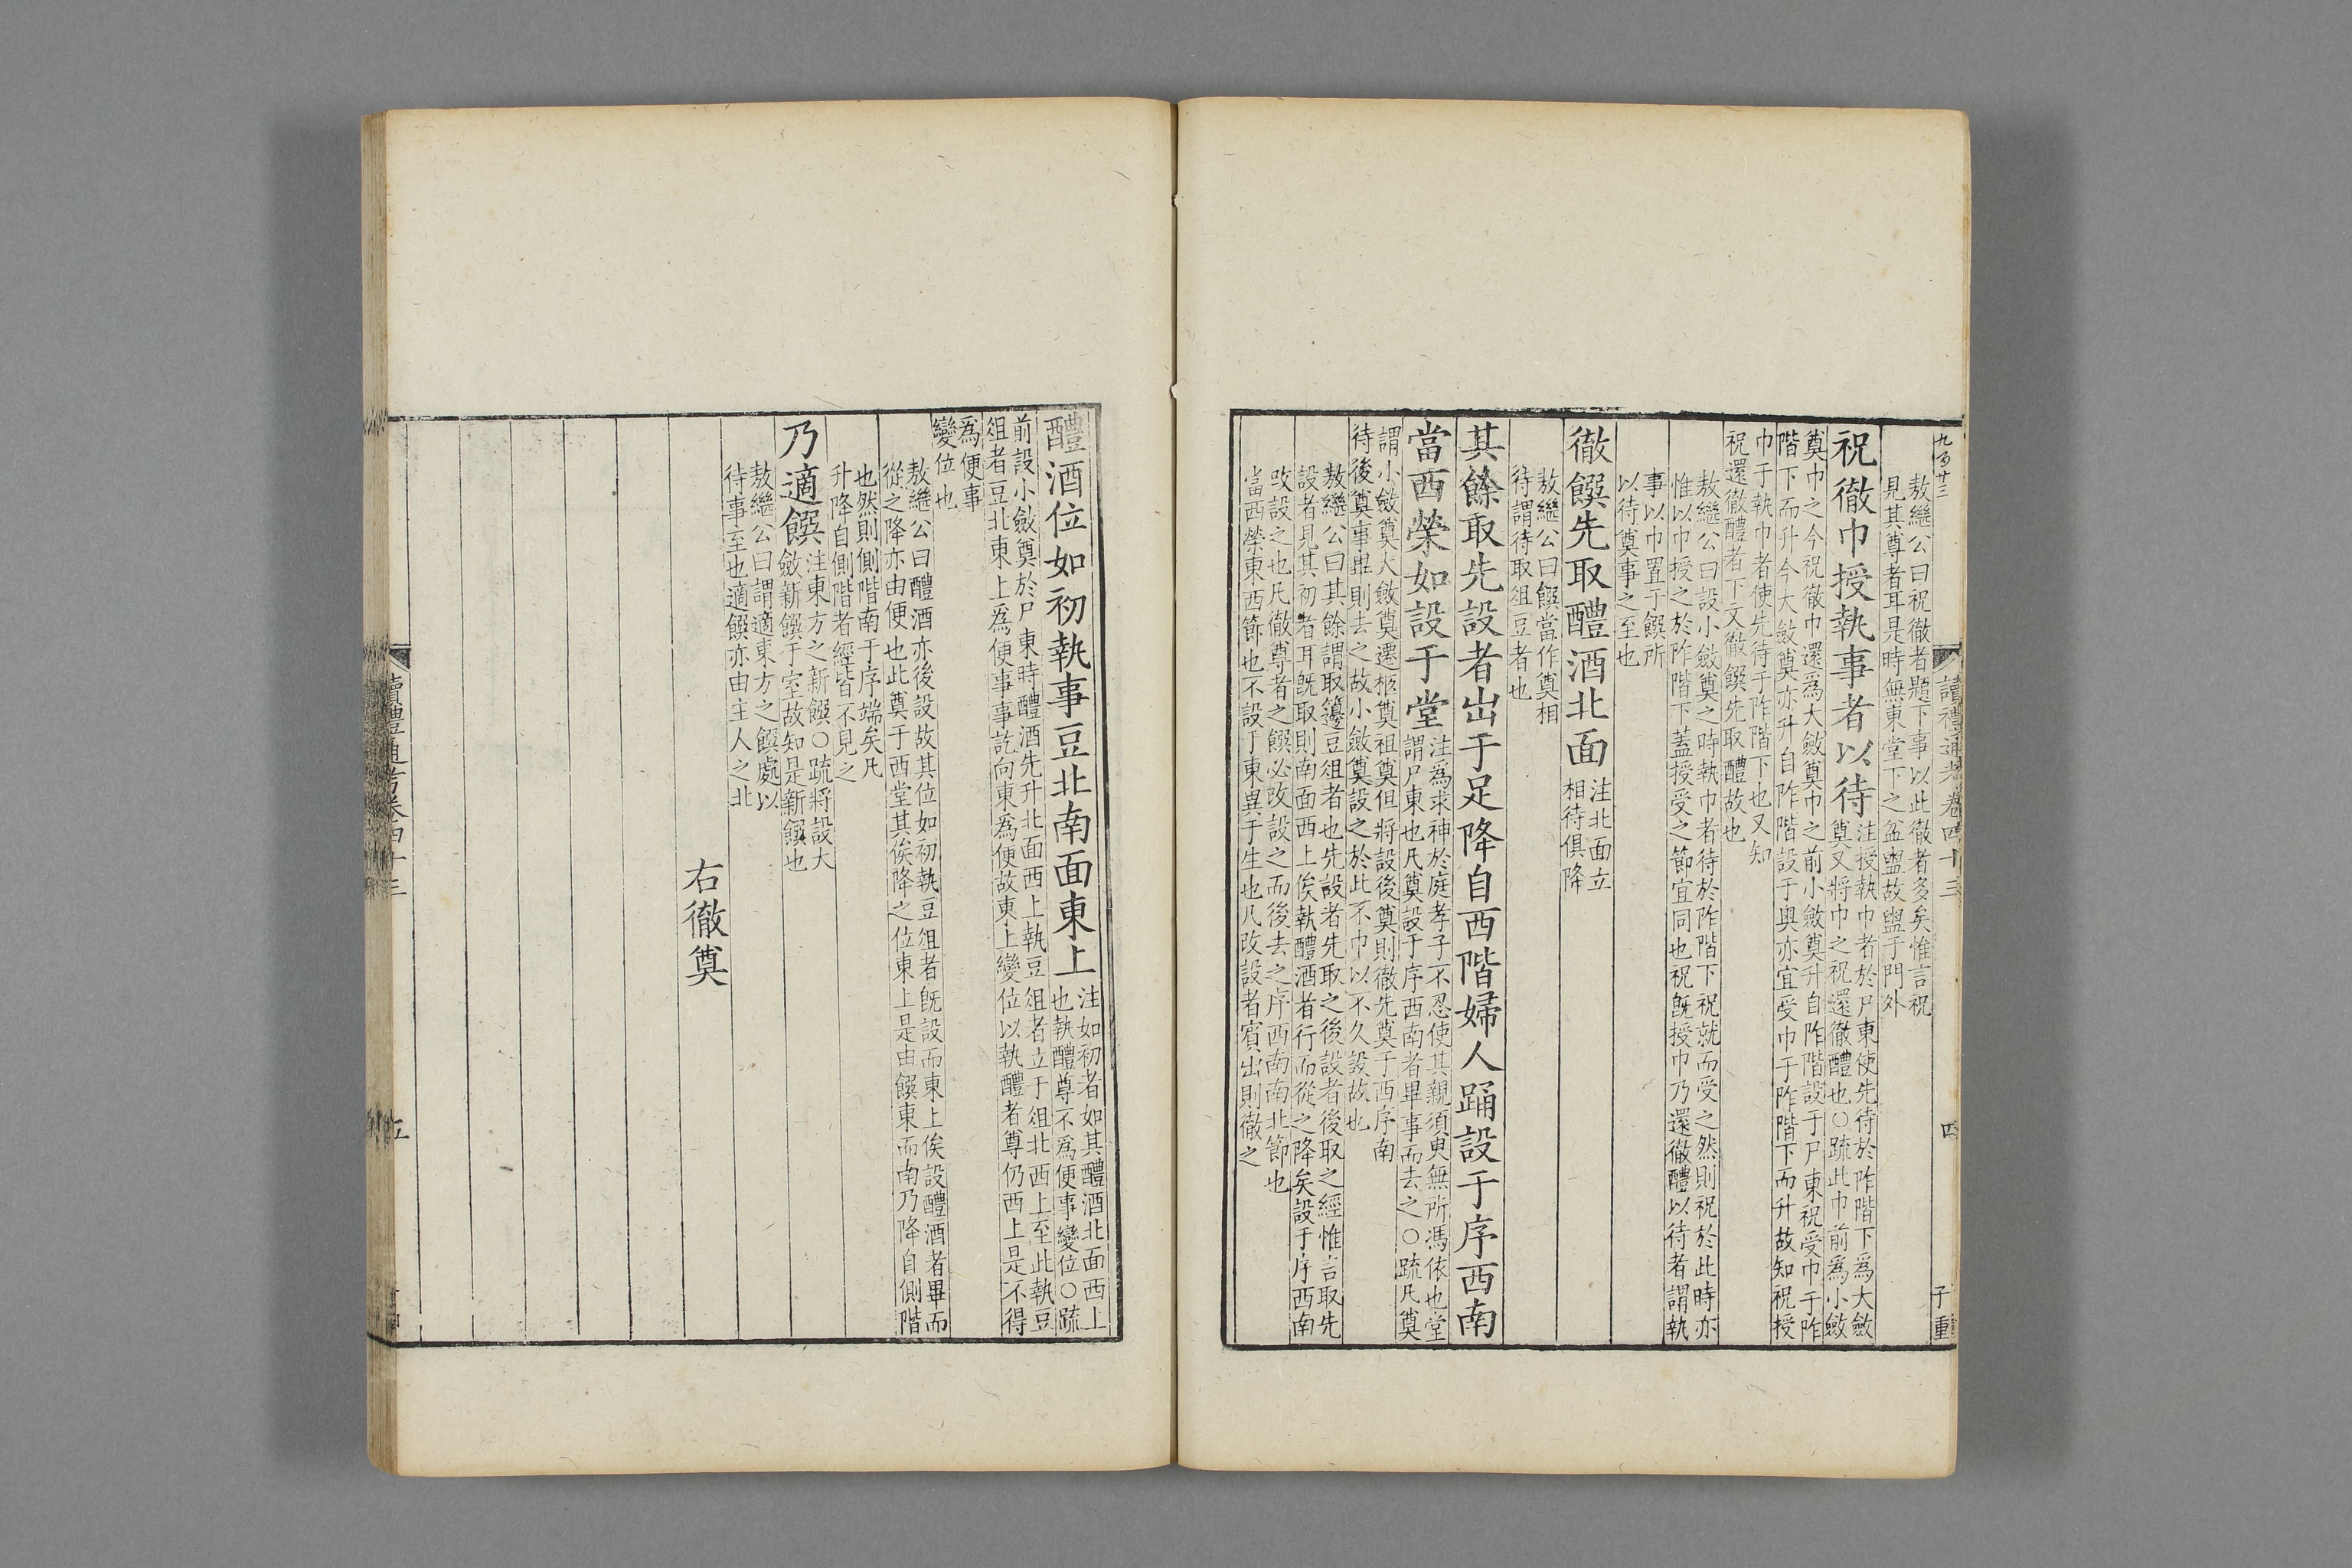 九百廿三
讀禮通考卷四十三
四
子重
敖繼公曰祝徹者題下事以此徹者多矣惟言祝
見其尊者耳是時無東堂下之盆盥故盥于門外
祝徹巾授執事者以待
注授執巾者於尸東使先待於阼階下爲大斂
奠又將巾之祝還徹醴也○疏此巾前爲小斂
奠巾之今祝徹巾還爲大斂奠巾之前小斂奠升自阼階設于尸東祝受巾于阼
階下而升今大斂奠亦升自阼階設于奧亦宜受巾于阼階下而升故知祝授
巾于執巾者使先待于阼階下也又知
祝還徹醴者下文徹饌先取醴故也
敖繼公曰設小斂奠之時執巾者待於阼階下祝就而受之然則祝於此時亦
惟以巾授之於阼階下蓋授受之節宜同也祝旣授巾乃還徹醴以待者謂執
事以巾置于饌所
以待奠事之至也
徹饌先取醴酒北面
注北面立
相待俱降
敖繼公曰饌當作奠相
待謂待取俎豆者也
其餘取先設者出于足降自西階婦人踊設于序西南
當西榮如設于堂
注爲求神於庭孝子不忍使其親須臾無所馮依也堂
謂尸東也凡奠設于序西南者畢事而去之○疏凡奠
謂小斂奠大斂奠遷柩奠祖奠但將設後奠則徹先奠于西序南
待後奠事畢則去之故小斂奠設之於此不巾以不久設故也
敖繼公曰其餘謂取籩豆俎者也先設者先取之後設者後取之經惟言取先
設者見其初者耳旣取則南面西上俟執醴酒者行而從之降矣設于序西南
改設之也凡徹尊者之饌必改設之而後去之序西南南北節也
當西榮東西節也不設于東異于生也凡改設者賓出則徹之
醴酒位如初執事豆北南面東上
注如初者如其醴酒北面西上
也執醴尊不爲便事變位○疏
前設小斂奠於尸東時醴酒先升北面西上執豆俎者立于俎北西上至此執豆
俎者豆北東上爲便事事訖向東爲便故東上變位以執醴者尊仍西上是不得
爲便事
變位也
敖繼公曰醴酒亦後設故其位如初執豆俎者旣設而東上俟設醴酒者畢而
從之降亦由便也此奠于西堂其俟降之位東上是由饌東而南乃降自側階
也然則側階南于序端矣凡
升降自側階者經皆不見之
乃適饌
注東方之新饌○疏將設大
斂新饌于室故知是新饌也
敖繼公曰謂適東方之饌處以
待事至也適饌亦由主人之北
右徹奠
讀禮通考卷四十三
五